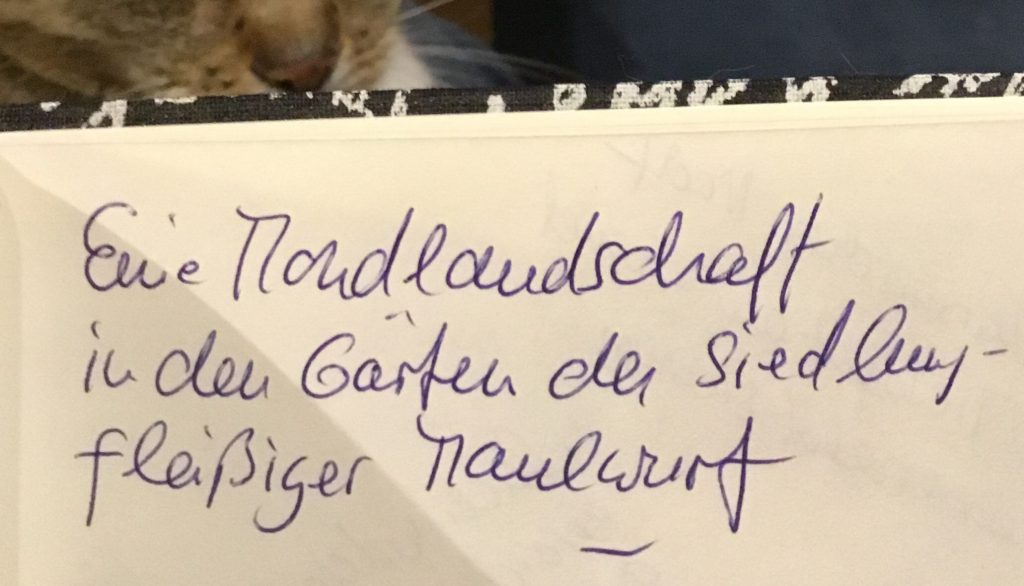 Eine Mondlandschaft
in den Gärten der Siedlung-
fleißiger Maulwurf